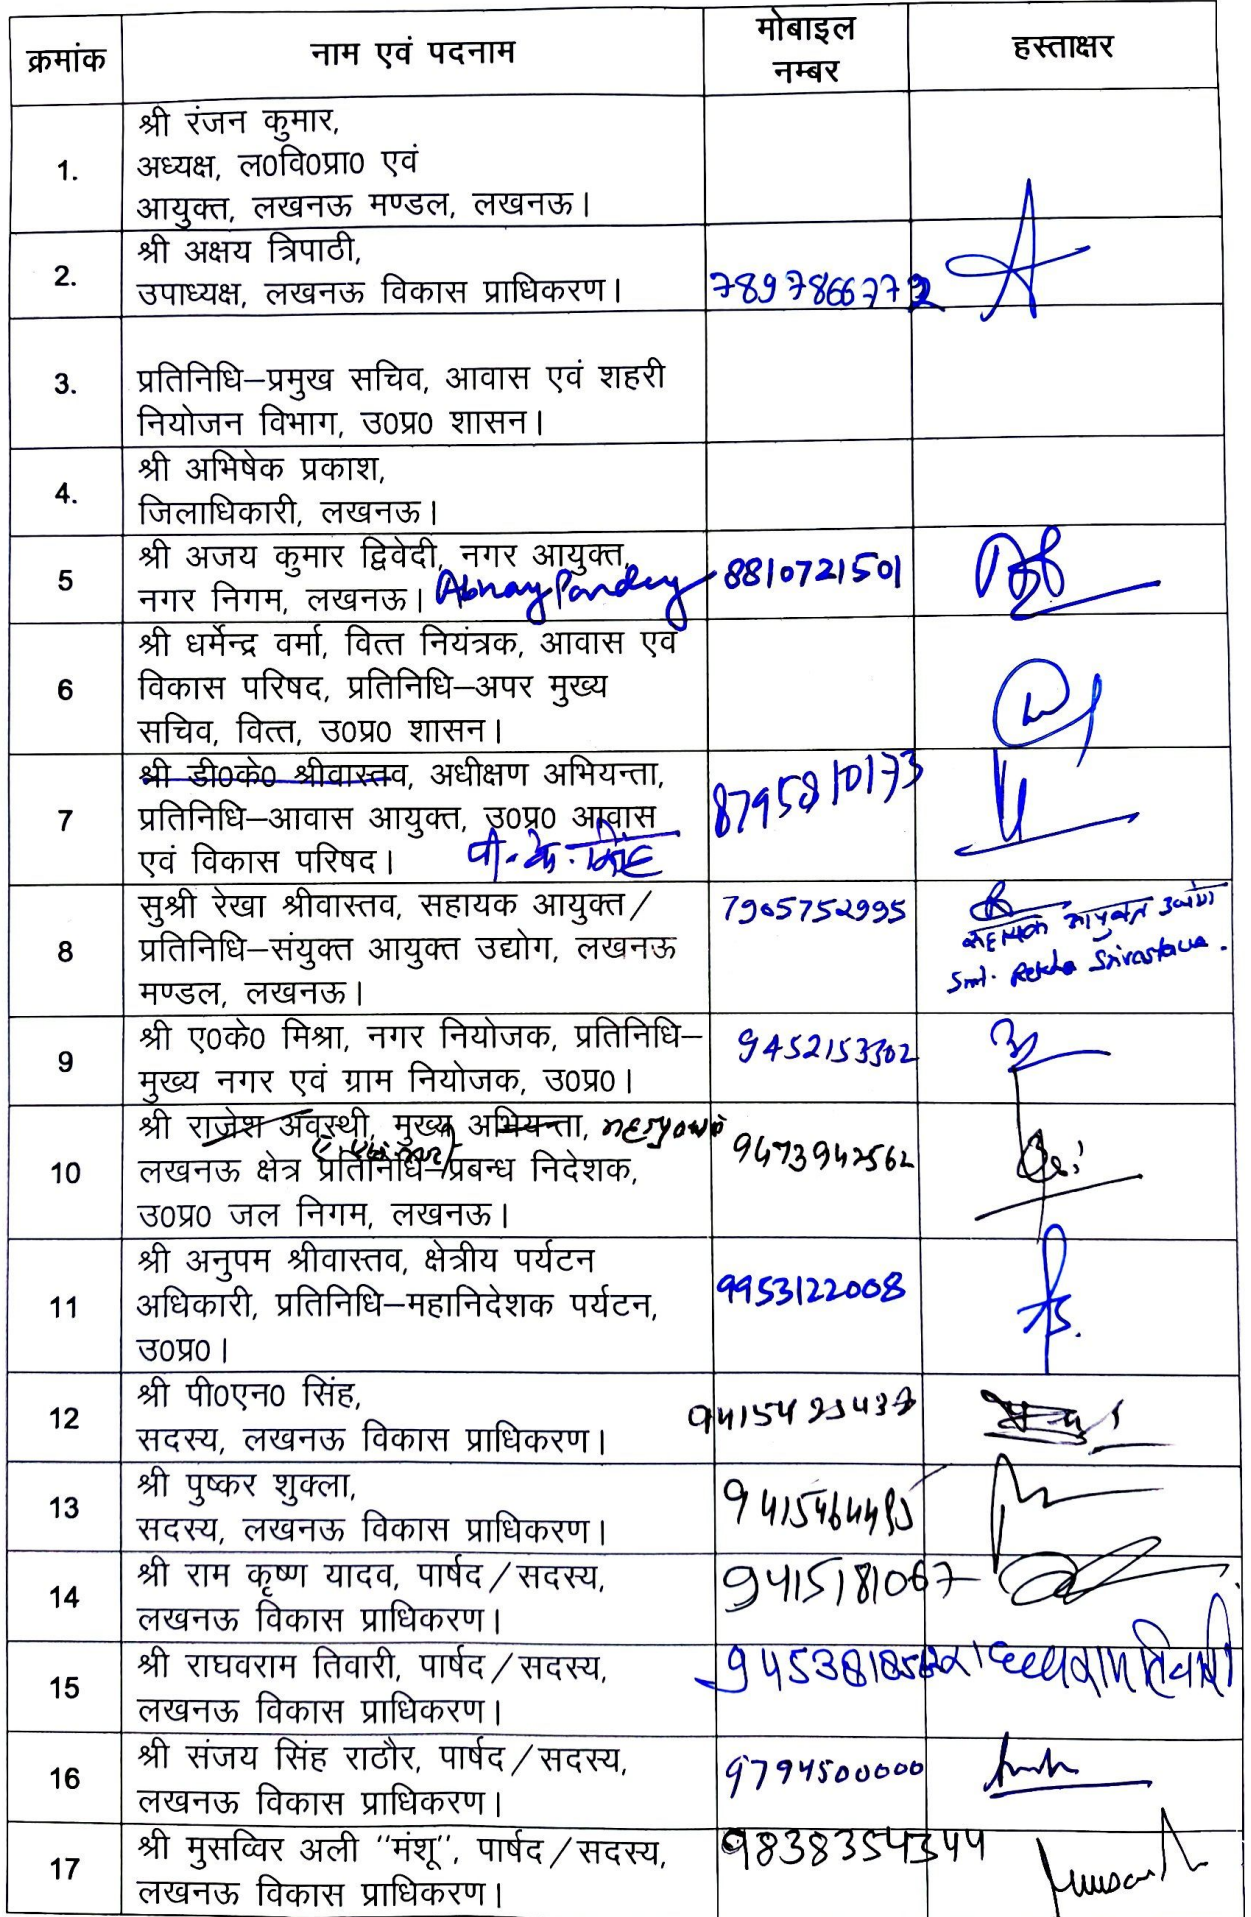 क्रमांक
नाम एवं पदनाम
मोबाइल
नम्बर
हस्ताक्षर
1.
श्री रंजन कुमार,
अध्यक्ष, ल0वि0प्रा0 एवं
आयुक्त, लखनऊ मण्डल, लखनऊ।
2.
श्री अक्षय त्रिपाठी,
उपाध्यक्ष, लखनऊ विकास प्राधिकरण।
7897866772
3.
प्रतिनिधि–प्रमुख सचिव, आवास एवं शहरी
नियोजन विभाग, उ0प्र0 शासन।
4.
श्री अभिषेक प्रकाश,
जिलाधिकारी, लखनऊ।
5
श्री अजय कुमार द्विवेदी, नगर आयुक्त,
नगर निगम, लखनऊ। Abhay Pandey
8810721501
6
श्री धर्मेन्द्र वर्मा, वित्त नियंत्रक, आवास एवं
विकास परिषद, प्रतिनिधि–अपर मुख्य
सचिव, वित्त, उ0प्र0 शासन।
7
श्री डी0के0 श्रीवास्तव, अधीक्षण अभियन्ता,
प्रतिनिधि–आवास आयुक्त, उ0प्र0 आवास
एवं विकास परिषद। पी. के. सिंह
8795810173
8
सुश्री रेखा श्रीवास्तव, सहायक आयुक्त/
प्रतिनिधि–संयुक्त आयुक्त उद्योग, लखनऊ
मण्डल, लखनऊ।
7905752995
सहायक आयुक्त उद्योग
Smt. Rekha Srivastava.
9
श्री ए0के0 मिश्रा, नगर नियोजक, प्रतिनिधि–
मुख्य नगर एवं ग्राम नियोजक, उ0प्र0।
9452153302
10
श्री राजेश अवस्थी, मुख्य अभियन्ता,
लखनऊ क्षेत्र प्रतिनिधि–प्रबन्ध निदेशक,
उ0प्र0 जल निगम, लखनऊ।
9473942562
11
श्री अनुपम श्रीवास्तव, क्षेत्रीय पर्यटन
अधिकारी, प्रतिनिधि–महानिदेशक पर्यटन,
उ0प्र0।
9953122008
12
श्री पी0एन0 सिंह,
सदस्य, लखनऊ विकास प्राधिकरण।
13
श्री पुष्कर शुक्ला,
सदस्य, लखनऊ विकास प्राधिकरण।
14
श्री राम कृष्ण यादव, पार्षद/सदस्य,
लखनऊ विकास प्राधिकरण।
9415181067
15
श्री राघवराम तिवारी, पार्षद/सदस्य,
लखनऊ विकास प्राधिकरण।
16
श्री संजय सिंह राठौर, पार्षद/सदस्य,
लखनऊ विकास प्राधिकरण।
9794500000
17
श्री मुसव्विर अली "मंशू", पार्षद/सदस्य,
लखनऊ विकास प्राधिकरण।
9838354344